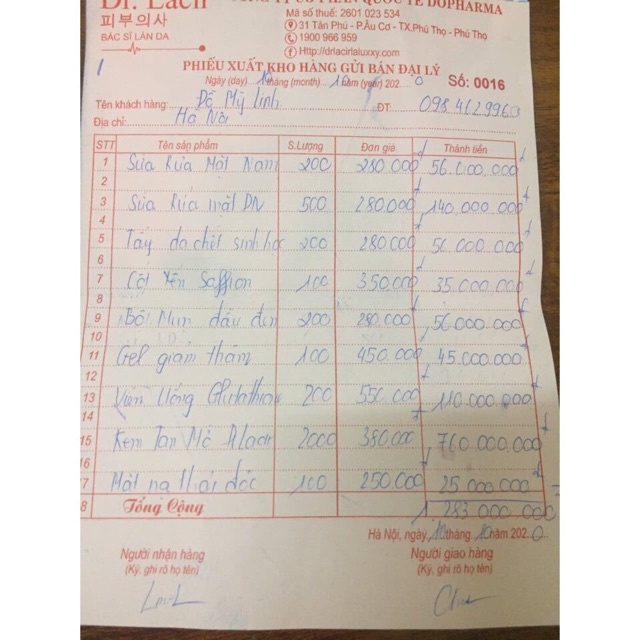 Dr. Lacir
피부의사
BÁC SĨ LÀN DA
QUỐC TẾ DOPHARMA
Mã số thuế: 2601 023 534
31 Tân Phú - P.Âu Cơ - TX.Phú Thọ - Phú Thọ
1900 966 959
Http://drlacirlaluxxy.com
PHIẾU XUẤT KHO HÀNG GỬI BÁN ĐẠI LÝ
Ngày (day) 10 tháng (month) 10 năm (year) 2020 Số: 0016
Tên khách hàng: Đỗ Mỹ Linh ĐT: 0984629960
Địa chỉ: Hà Nội
STT Tên sản phẩm S.Lượng Đơn giá Thành tiền
1 Sữa Rửa Mặt Nam 200 280.000đ 56.000.000đ
2
3 Sữa Rửa mặt DN 500 280.000đ 140.000.000đ
4
5 Tẩy da chết sinh học 200 280.000đ 56.000.000đ
6
7 Cốt Yến Saffron 100 350.000đ 35.000.000đ
8
9 Bộ Mụn đầu đen 200 280.000đ 56.000.000đ
10
11 Gel giảm thâm 100 450.000đ 45.000.000đ
12
13 Viên Uống Glutathion 200 550.000đ 110.000.000đ
14
15 Kem Tan Mỡ Dr Lacir 2000 380.000đ 760.000.000đ
16
17 Mặt nạ thải độc 100 250.000đ 25.000.000đ
18 Tổng Cộng 1 283 000 000
Hà Nội, ngày 10 tháng 10 năm 2020
Người nhận hàng Người giao hàng
(Ký, ghi rõ họ tên) (Ký, ghi rõ họ tên)